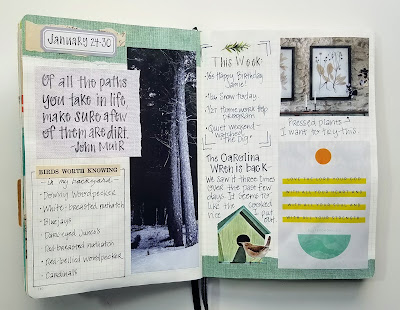 January 24-30
Of all the paths
you take in life,
make sure a few
of them are dirt.
John Muir
BIRDS WORTH KNOWING
- in my backyard -
- Downy Woodpecker
- White-breasted nuthatch
- Bluejays
- Dark-eyed Junco's
- Red-bellied Woodpecker
- Cardinals
This Week:
Happy Birthday
Jamie!
Snow today
program
Quiet weekend
Watched
"The Dig"
The Carolina
Wren is back -
We saw it three times
over the past few
days. It seems to
like the
nice I put
out.
Pressed plants -
I want to try this.
WITH ALL YOUR STRENGTH